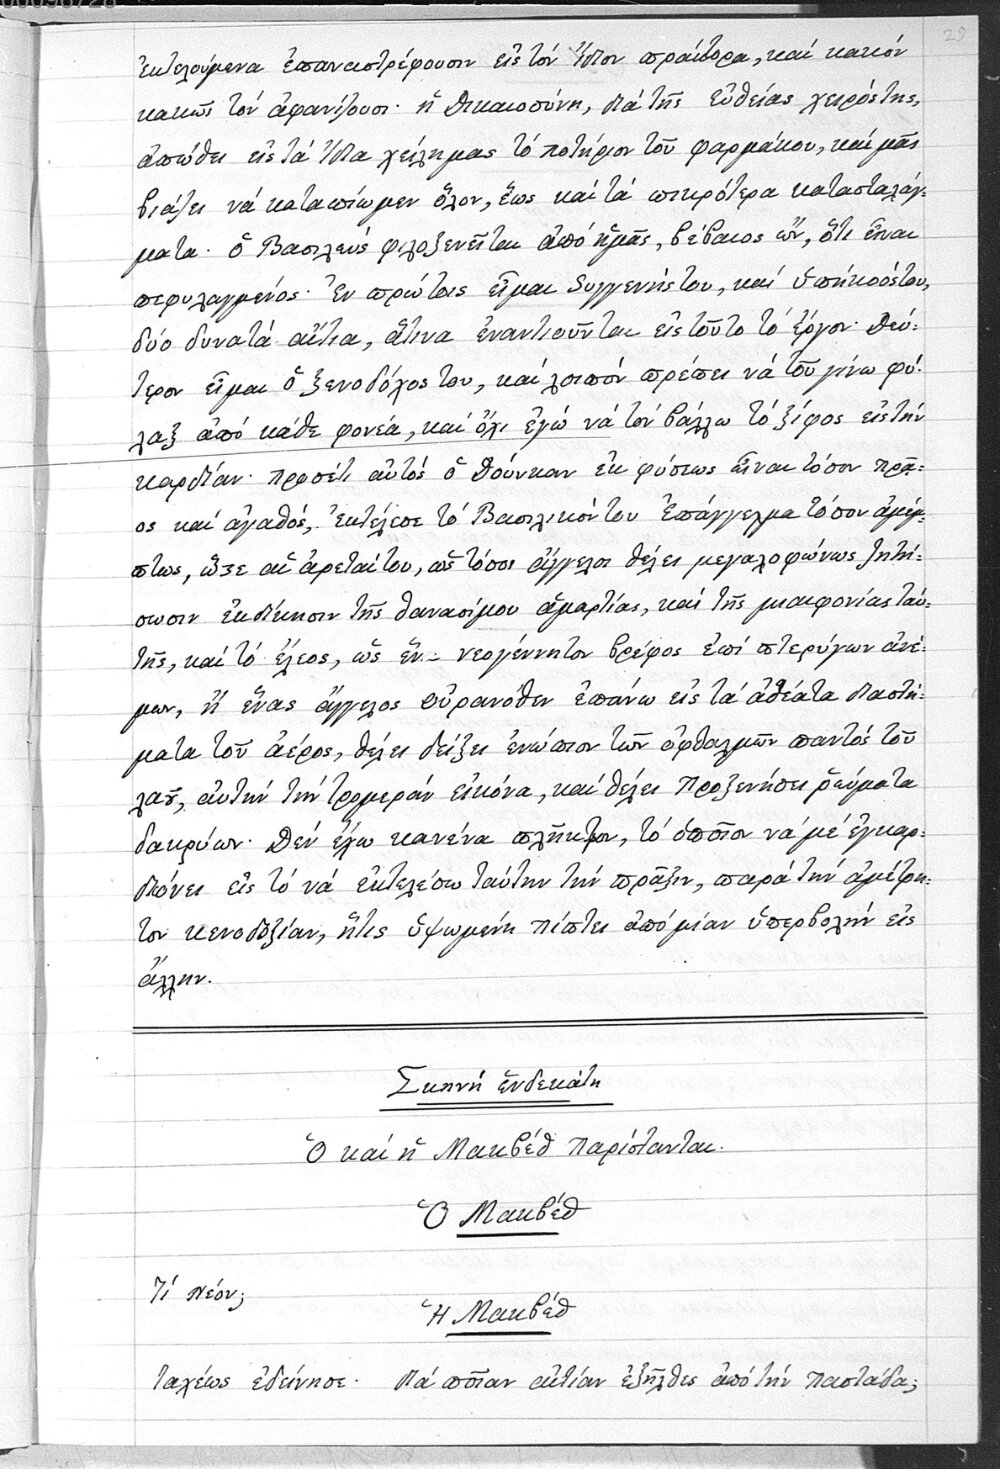 25
ἐκτελούμενα ἐπαναστρέφουσιν εἰς τόν ἴδιον πράκτορα, καί κακόν
κακῶς τόν ἀφανίζουσι· ἡ δικαιοσύνη, διά τῆς εὐθείας χειρός της,
ἀπωθεῖ εἰς τά ἴδια χείλη μας τό ποτήριον τοῦ φαρμάκου, καί μᾶς
βιάζει νά καταπίωμεν ὅλον, ἕως καί τά πικρότερα κατασταλάγ-
ματα· ὁ Βασιλεύς φιλοξενεῖται ἀπό ἡμᾶς, βέβαιος ὤν, ὅτι εἶναι
πεφυλαγμένος· Ἐν πρώτοις εἶμαι συγγενής του, καί ὑπήκοός του,
δύο δυνατά αἴτια, ἅτινα ἐναντιοῦνται εἰς τοῦτο τό ἔργον· δεύ-
τερον εἶμαι ὁ ξενοδόχος του, καί λοιπόν πρέπει νά τοῦ γίνω φύ-
λαξ ἀπό κάθε φονέα, καί ὄχι ἐγώ νά τόν βάλλω τό ξίφος εἰς τήν
καρδίαν· προσέτι αὐτός ὁ Δούνκαν ἐκ φύσεως εἶναι τόσον πρᾶ-
ος καί ἀγαθός, ἐκτέλεσε τό Βασιλικόν του ἐπάγγελμα τόσον ἀμέμ-
πτως, ὥστε αἱ ἀρεταί του, ὡς τόσοι ἄγγελοι θέλει μεγαλοφώνως ζητή-
σωσιν ἐκδίκησιν τῆς θανασίμου ἁμαρτίας, καί τῆς μιαιφονίας ταύ-
της, καί τό ἔλεος, ὡς ἕν νεογέννητον βρέφος ἐπί πτερύγων ἀνέ-
μων, ἤ ἕνας ἄγγελος οὐρανόθεν ἐπάνω εἰς τά ἀθέατα διαστή-
ματα τοῦ ἀέρος, θέλει δείξει ἐνώπιον τῶν ὀφθαλμῶν παντός τοῦ
λαοῦ, αὐτήν τήν τρομεράν εἰκόνα, καί θέλει προξενήσει ῥεύματα
δακρύων· Δέν ἔχω κανένα πλῆκτρον, τό ὁποῖον νά μέ ἐγκαρ-
διόνει εἰς τό νά ἐκτελέσω ταύτην τήν πρᾶξιν, παρά τήν ἀμέτρη-
τον κενοδοξίαν, ἥτις ὑψωμένη πίπτει ἀπό μίαν ὑπερβολήν εἰς
ἄλλην.
Σκηνή ἑνδεκάτη
Ὁ καί ἡ Μακβέθ παρίστανται.
Ὁ Μακβέθ
Τί νέον;
Ἡ Μακβέθ
Ταχέως ἐδείπνησε· διά ποῖαν αἰτίαν ἐξῆλθες ἀπό τήν παστάδα;